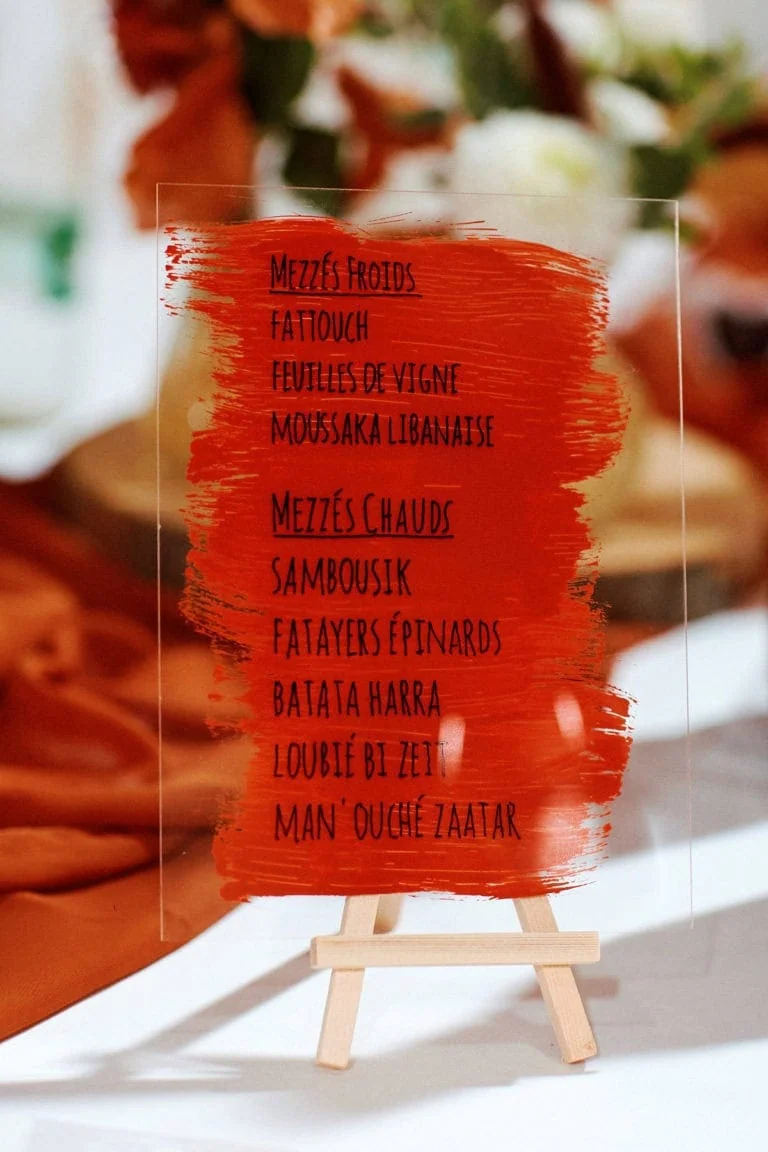 Mezzés Froids
FATTOUCH
FEUILLES DE VIGNE
MOUSSAKA LIBANAISE
Mezzés Chauds
SAMBOUSIK
FATAYERS ÉPINARDS
BATATA HARRA
LOUBIÉ BI ZEIT
MAN'OUCHÉ ZAATAR